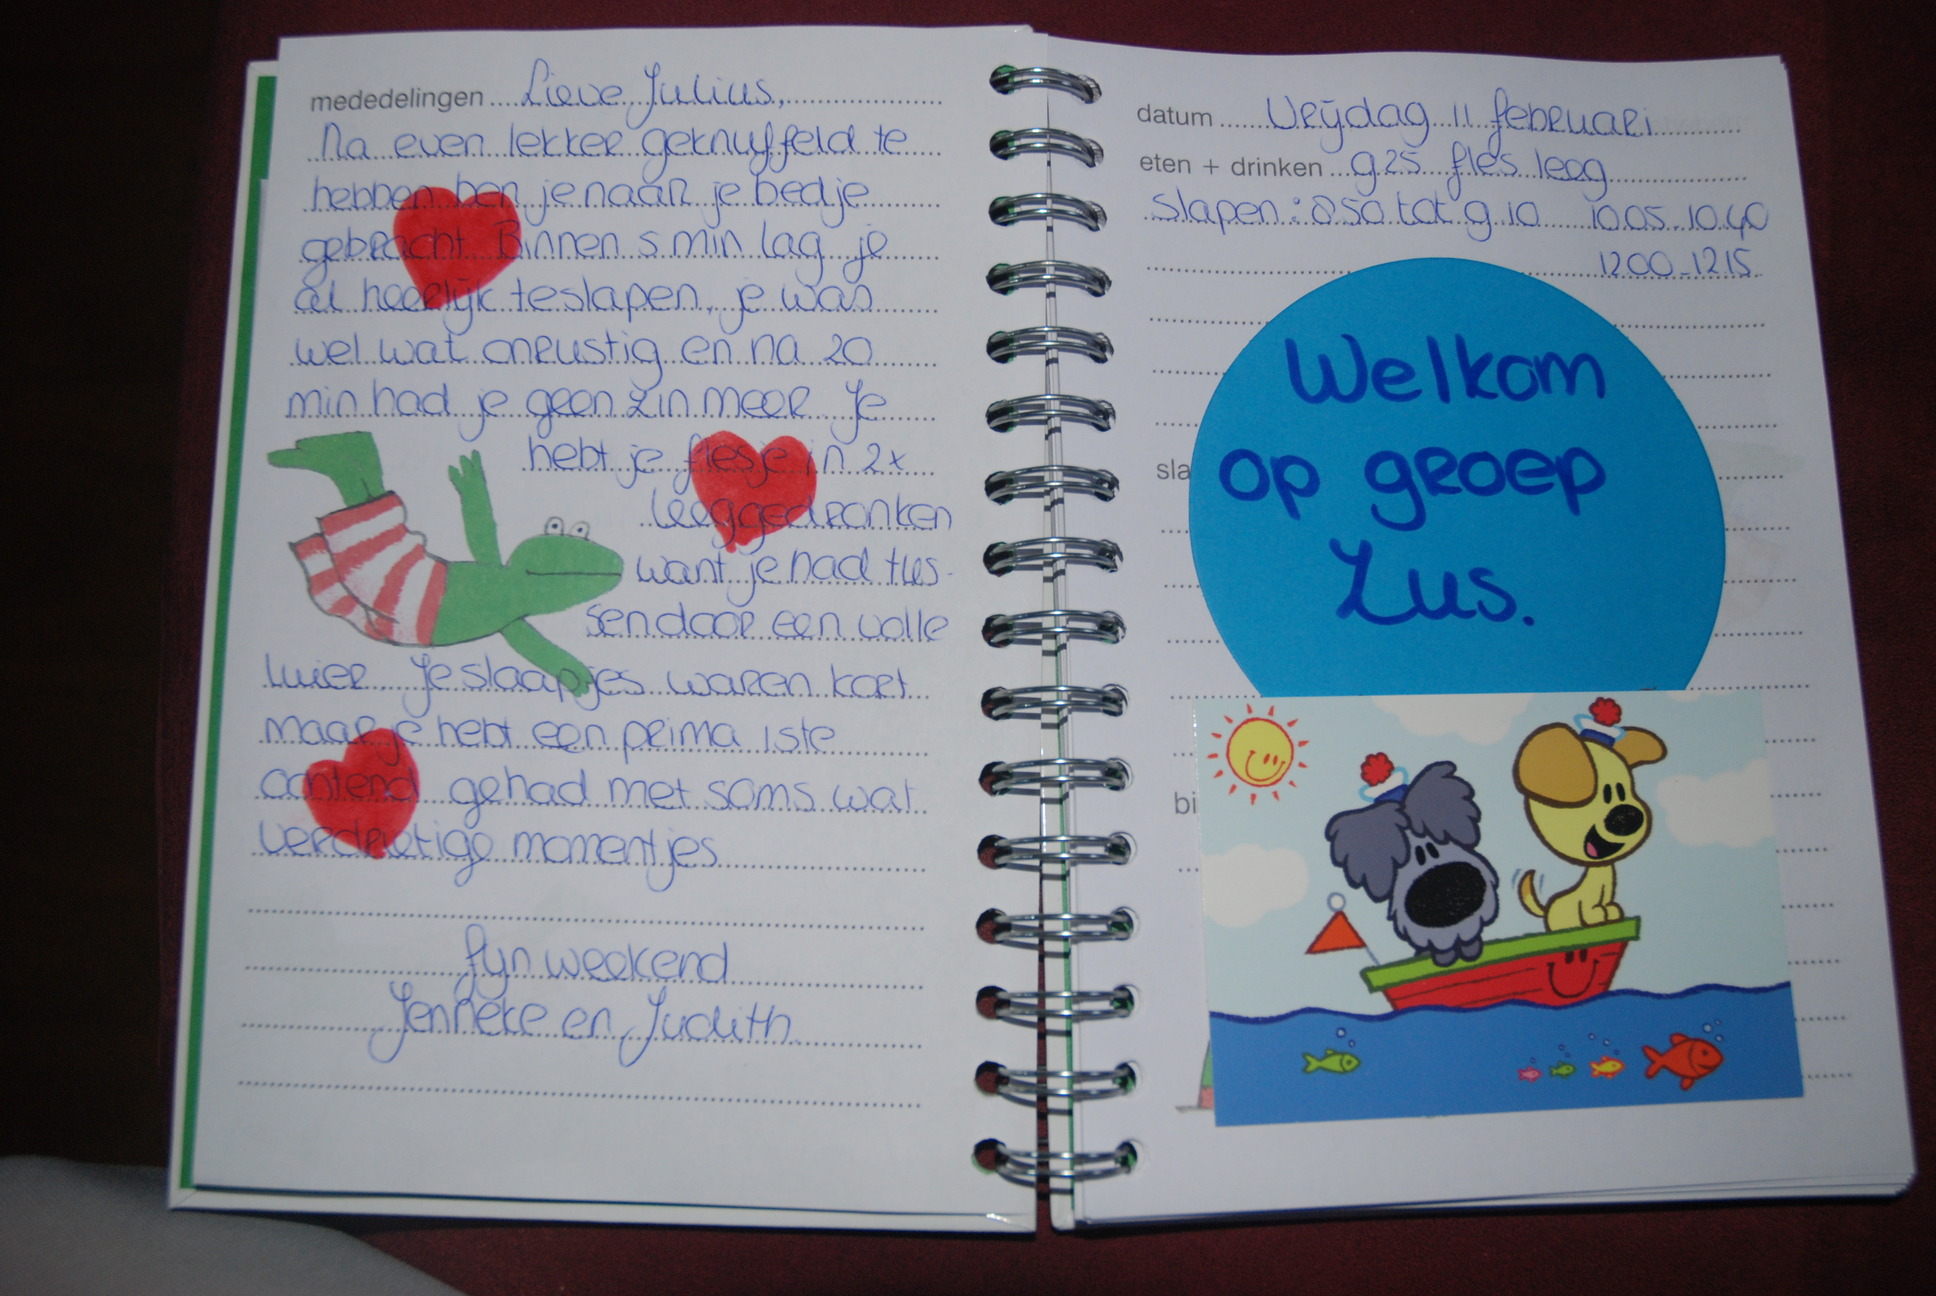 mededelingen Lieve Julius,
Na even lekker geknuffeld te
hebben ben je naar je bedje
gebracht. Binnen 5 min lag je
al heerlijk te slapen, je was
wel wat onrustig en na 20
min had je geen zin meer. Je
hebt je flesje in 2x
leeggedronken
want je had tus-
sendoor een volle
luier. Je slaapjes waren kort
maar je hebt een prima 1ste
ochtend gehad met soms wat
verdrietige momentjes
fijn weekend
Jenneke en Judith
datum Vrijdag 11 februari
eten + drinken 9.25 fles leeg
slapen: 8.50 tot 9.10 10.05-10.40
12.00-12.15
Welkom
op groep
Zus.
sla
bi